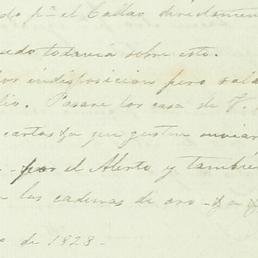 do pª el Callao directamen
edo todavia sobre esto.
indisposicion pero sala
lio. Pasare los casa de V.
cartas que gusten enviar
por el Alerto y tambie
las cadenas de oro
de 1828 -